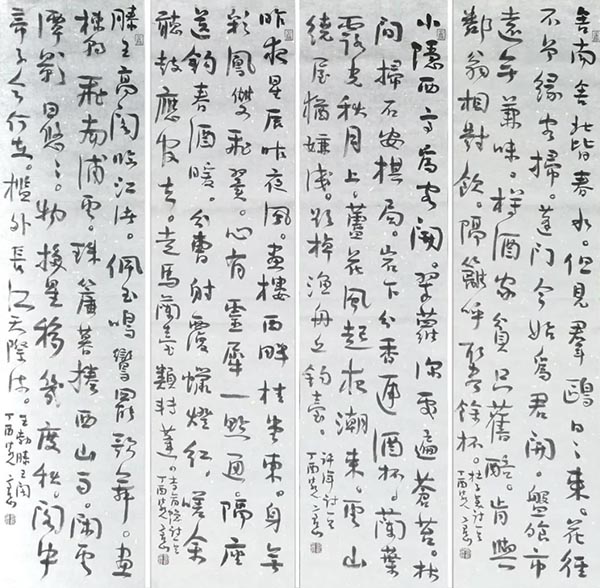 舍南舍北皆春水。但見羣鷗日日來。花徑
不曾緣客掃。蓬門今始為君開。盤飧市
遠無兼味。樽酒家貧只舊醅。肯與
鄰翁相對飲。隔籬呼取盡餘杯。
杜甫詩
丁酉
小隱西亭為客開。翠蘿深處遍蒼苔。林
間掃石安棋局。岩下分香遞酒杯。蘭葉
露光秋月上。蘆花風起夜潮來。雲山
繞屋猶嫌淺。欲棹漁舟近釣臺。
許渾詩
丁酉
昨夜星辰昨夜風。畫樓西畔桂堂東。身無
彩鳳雙飛翼。心有靈犀一點通。隔座
送鈎春酒暖。分曹射覆蠟燈紅。嗟余
聽鼓應官去。走馬蘭臺類轉蓬。
李商隱詩
丁酉
滕王高閣臨江渚。佩玉鳴鸞罷歌舞。畫
棟朝飛南浦雲。珠簾暮捲西山雨。閑雲
潭影日悠悠。物換星移幾度秋。閣中
帝子今何在。檻外長江天際流。
王勃滕王閣
丁酉